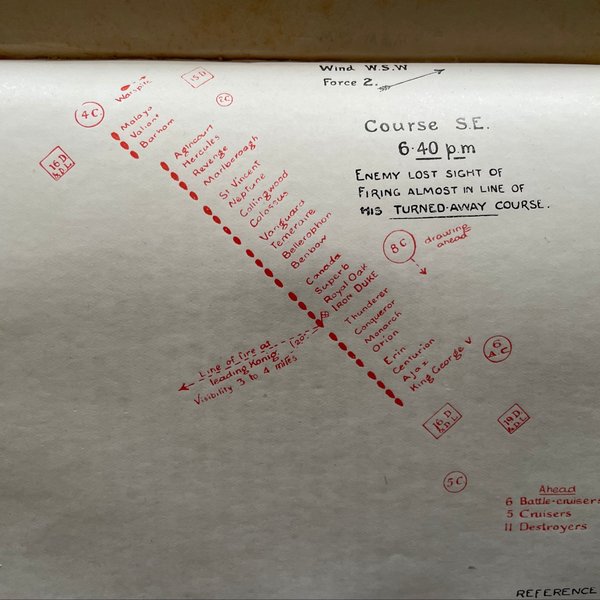 Wind W.S.W
Force 2.
Course S.E.
6·40 pm
ENEMY LOST SIGHT OF
FIRING ALMOST IN LINE OF
HIS TURNED-AWAY COURSE.
15 D
2C
Warspite
4C
Malaya
Valiant
Barham
16 D
& D.L
Agincourt
Hercules
Revenge
Marlborough
St Vincent
Neptune
Collingwood
Colossus
Vanguard
Temeraire
Bellerophon
Benbow
Canada
Superb
Royal Oak
IRON DUKE
8C
drawing
ahead
Thunderer
Conqueror
Monarch
Orion
Erin
Centurion
Ajax
King George V
6
AC
Line of fire at
leading König
Visibility 3 to 4 miles
16 D
& D.L
19 D
& D.L
5C
Ahead
6 Battle-cruisers
5 Cruisers
11 Destroyers
REFERENCE